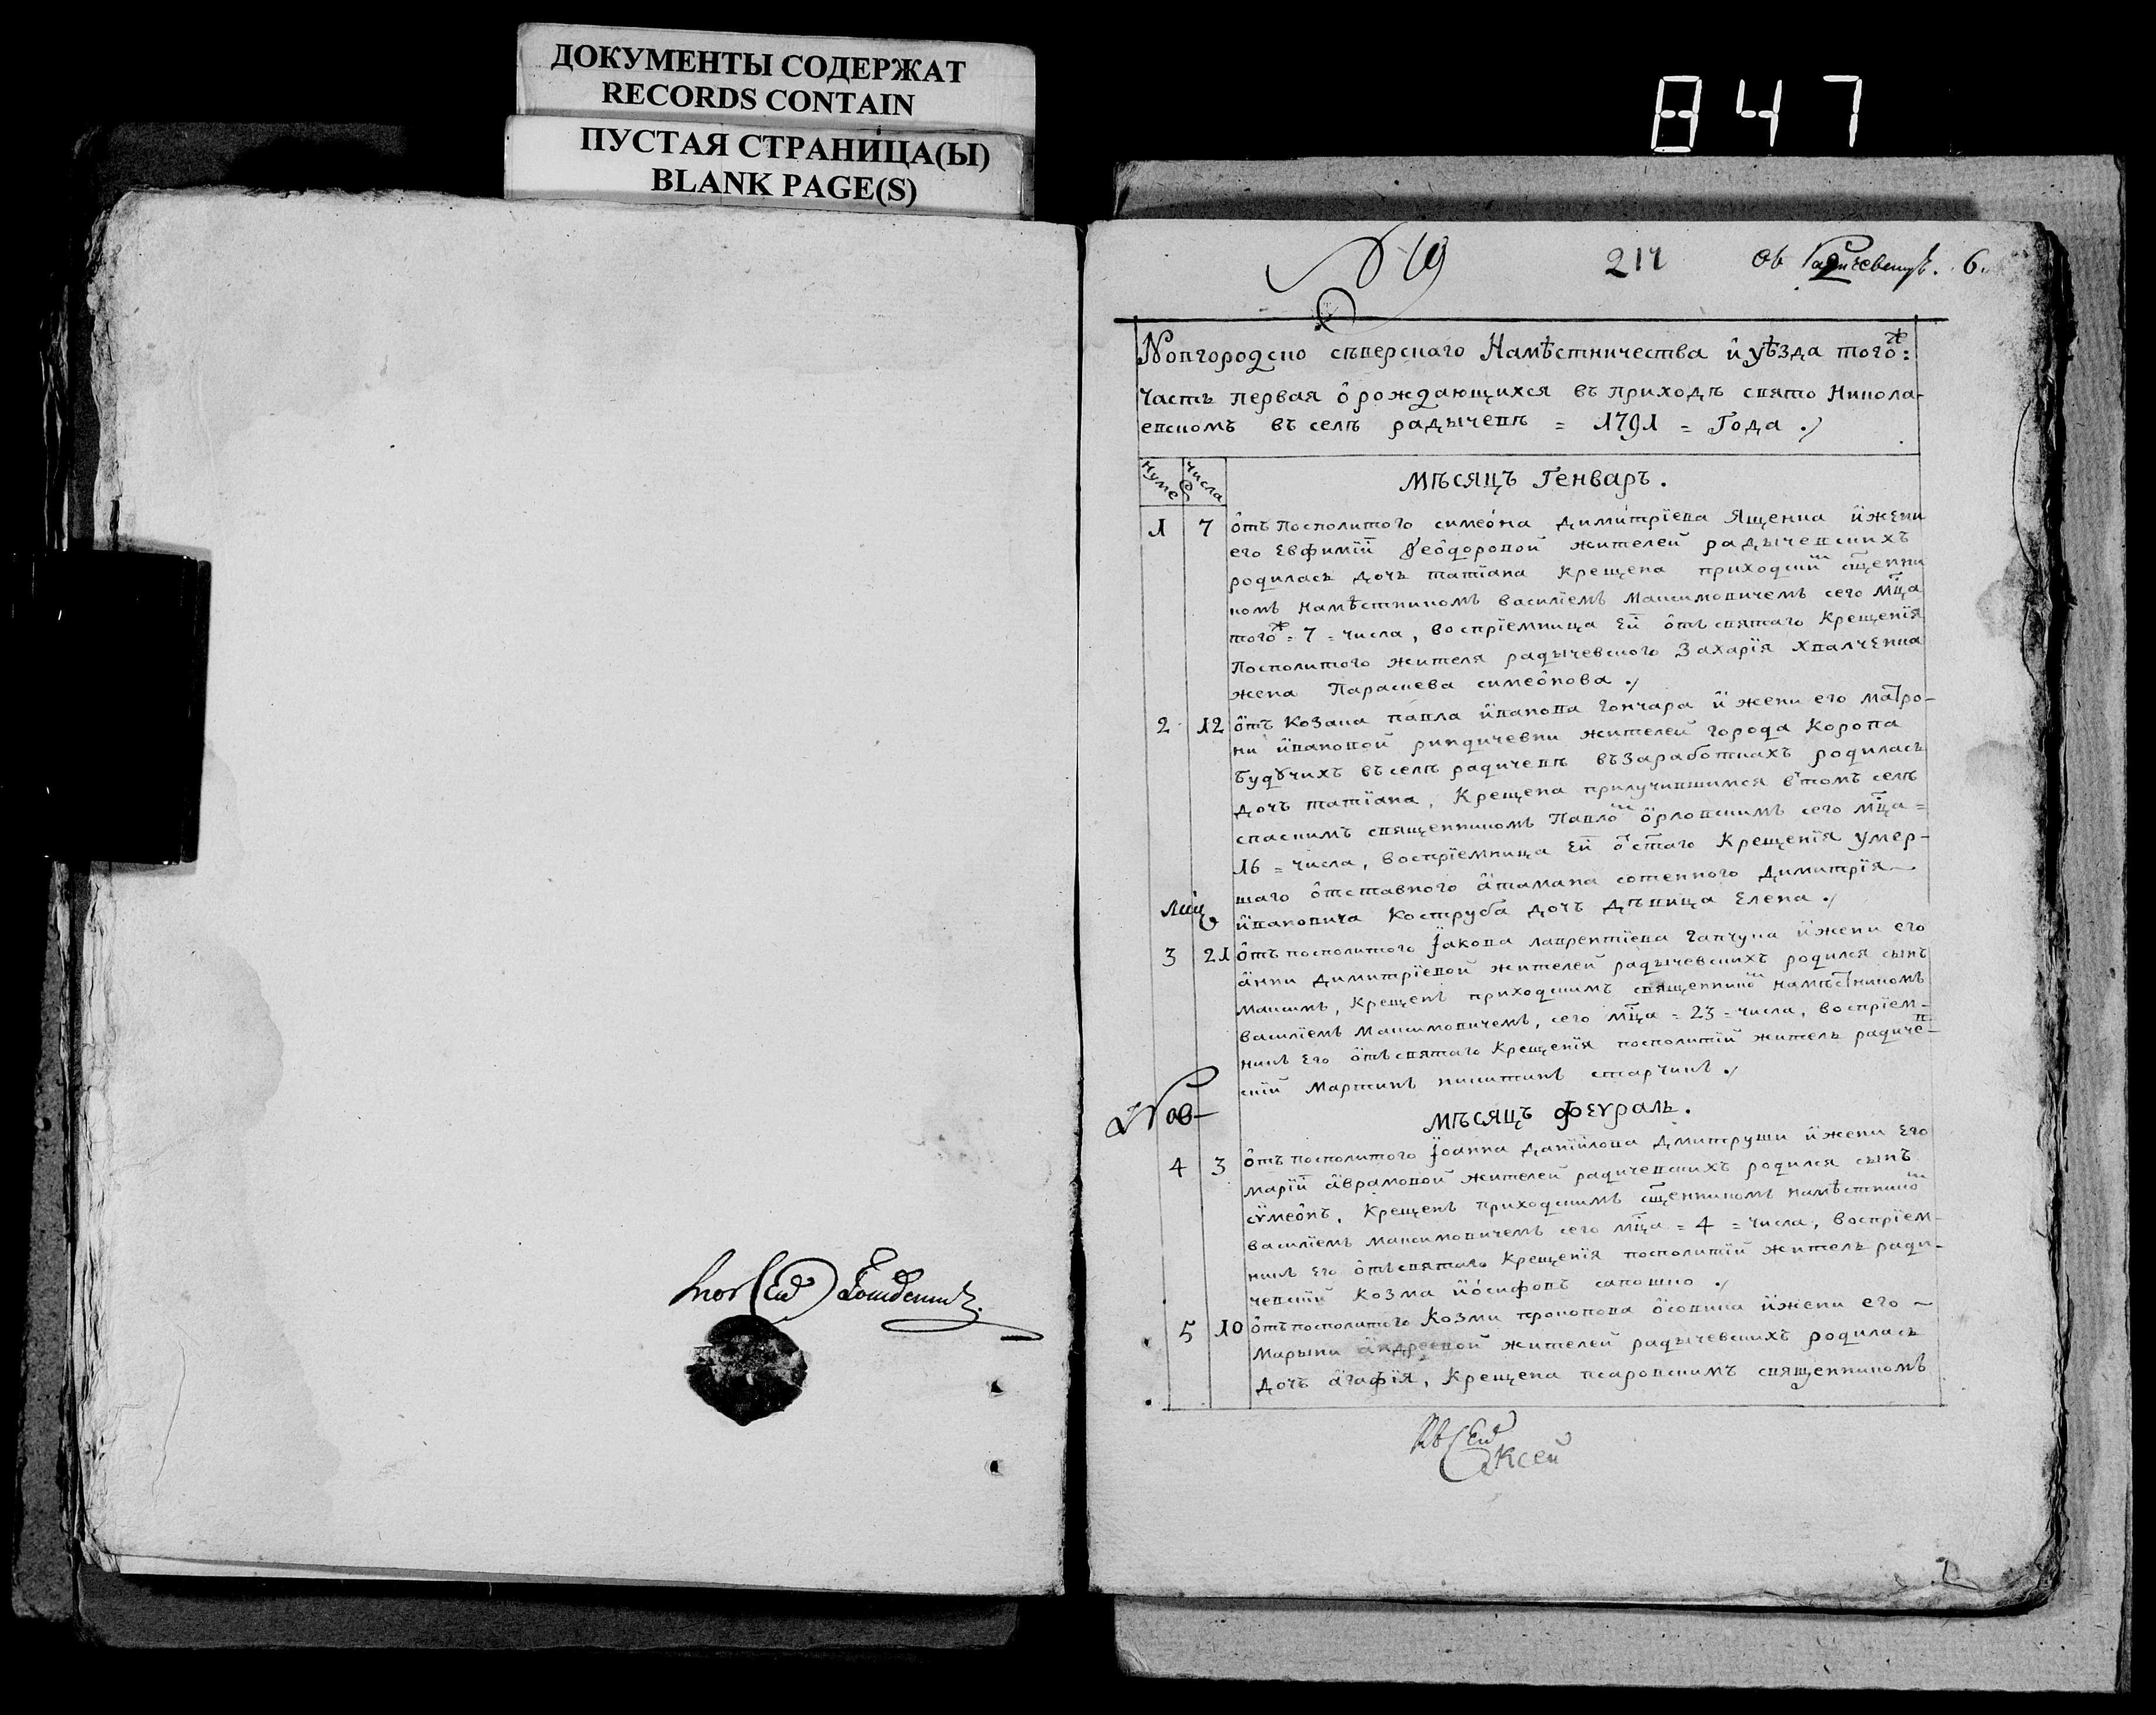 ДОКУМЕНТЫ СОДЕРЖАТ
RECORDS CONTAIN
ПУСТАЯ СТРАНИЦА(Ы)
BLANK PAGE(S)
847
№ 19
214
6.
Новгородско сѣверскаго Намѣстничества и уѣзда того ж:
Часть первая о рождающихся въ приходѣ свято Никола-
евскомъ въ селѣ радычевѣ = 1791 = Года ./
Нумер Числа
Мѣсяцъ Генваръ.
1 7 отъ посполитого симеона димитрїева Ященка и жени
его Евфимїи Ѳеодоровой жителей радычевскихъ
родилась дочь татїана крещена приходскиⷨ сщенни
комъ намѣстникомъ василїемъ Максимовичемъ сего мца
того ж = 7 = числа, воспрїемница Ей отъ святаго Крещенїя
Посполитого жителя радычевского Захарїя Хвалченка
жена Параскева симеонова ./
2 12 отъ Козака павла иванова гончара и жени его матро-
ни ивановой риндичевни жителей города Коропа
будꙋчихъ въ селѣ радичевѣ въ заработкахъ родилась
дочъ татїана, Крещена прилучившимся в томъ селѣ
спаскимъ священникомъ Павлоⷨ орловскимъ сего мца =
16 = числа, воспрїемница Ей о стаго Крещенїя умер-
шаго отставного атамана сотенного Димитрїя
ивановича Коструба дочъ дѣвица Елена ./
3 21 отъ посполитого Їакова лаврентїева гапчука и жени его
анни димитрїевой жителей радычевскихъ родился сынъ
максимъ, Крещенъ приходскимъ священникоⷨ намѣстникомъ
василїемъ Максимовичемъ, сего мца = 23 = числа, воспрїем-
никъ Его отъ святаго Крещенїя посполитїй житель радичев-
скїй Мартинъ никитинъ старчикъ ./
Мѣсяцъ Феѵраль.
4 3 отъ посполитого Їоанна данїилова дмитруши и жени Его
марїи аврамовой жителей радичевскихъ родился сынъ
сѵмеонъ, Крещенъ приходскимъ сщенникомъ намѣстникоⷨ
василїемъ максимовичемъ сего мца = 4 = числа, воспрїем-
никъ Его отъ святаго Крещенїя посполитїй житель ради-
чевскїй Козма иосифовъ сапошко ./
5 10 отъ посполитого Козми прокопова осовика и жени его
Марыни андреевой жителей радычевскихъ родилась
дочъ агафїя, Крещена псаровскимъ священникомъ